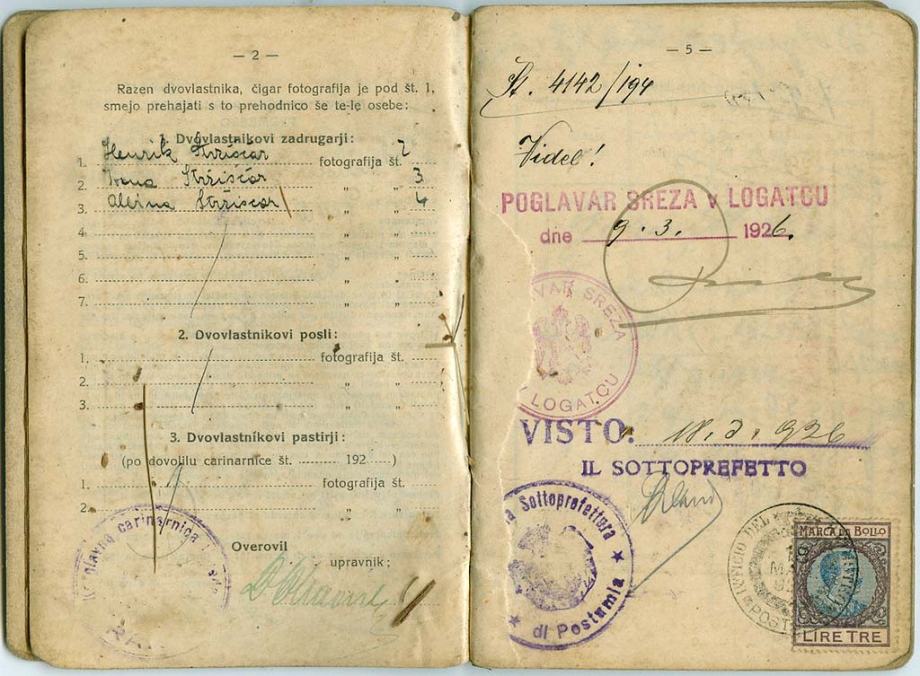 — 2 —
Razen dvovlastnika, čigar fotografija je pod št. 1,
smejo prehajati s to prehodnico še te-le osebe:
1. Dvovlastnikovi zadrugarji:
1. Henrik Stržiščar fotografija št. 2
2. Ivana Stržiščar „ „ 3
3. Stržiščar „ „ 4
4. „ „
5. „ „
6. „ „
7. „ „
2. Dvovlastnikovi posli:
1. fotografija št.
2. „ „
3. „ „
3. Dvovlastnikovi pastirji:
(po dovolilu carinarnice št. 192 )
1. fotografija št.
2. „ „
Glavna carinarnica
Overovil
upravnik:
— 5 —
Št. 4142/194
Videl!
POGLAVAR SREZA v LOGATCU
dne 9. 3. 1926.
VAR SREZA
LOGATCU
VISTO: 18. 3. 926
IL SOTTOPREFETTO
Sottoprefettura
di Postumia
UFFICIO DEL
POST
MARCA DA BOLLO
LIRE TRE